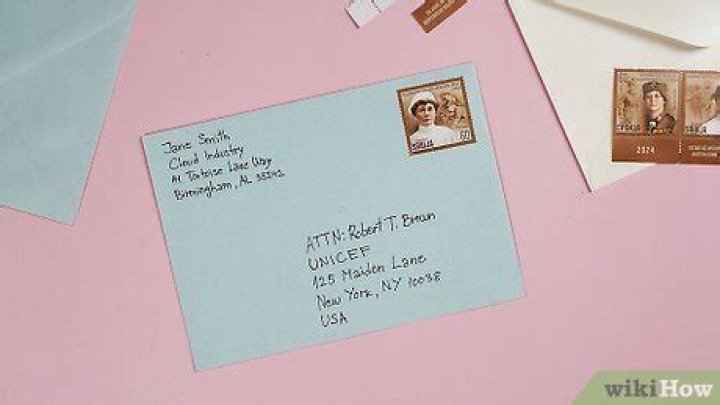 Jane Smith
Cloud Industry
41 Tortoise Lane Way
Birmingham, AL 35242
ATTN: Robert T. Brown
UNICEF
125 Maiden Lane
New York, NY 10038
USA
60
2024
wikiHow